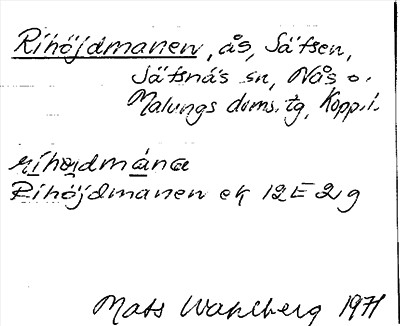 Rihöjdmanen, ås, Säfsen,
Säfsnäs sn, Nås o.
Malungs doms. tg, Kopp. l.
Rihöjdmanen ek 12E 2g
Mats Wahlberg 1971